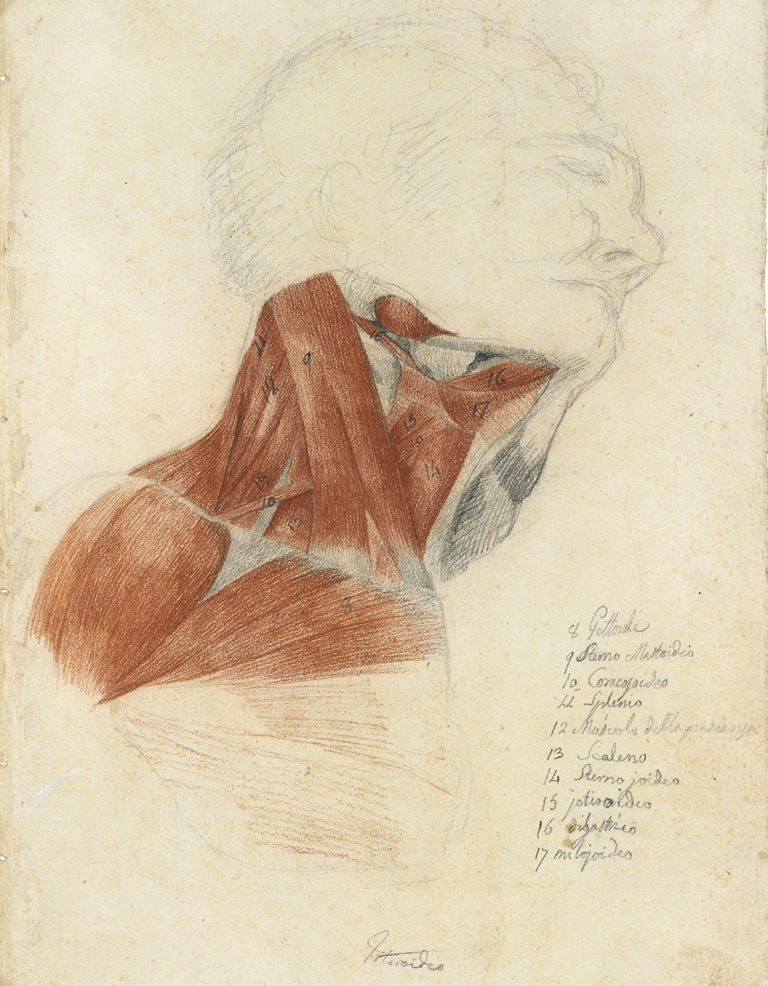 11
9
12
16
17
15
14
13
10
13
8
8 Pettorale
9 Sterno Mastoideo
10 Coracojoideo
11 Splenio
12 Muscolo della
13 Scaleno
14 Sterno joideo
15 jotiroideo
16 digastrico
17 milojoideo